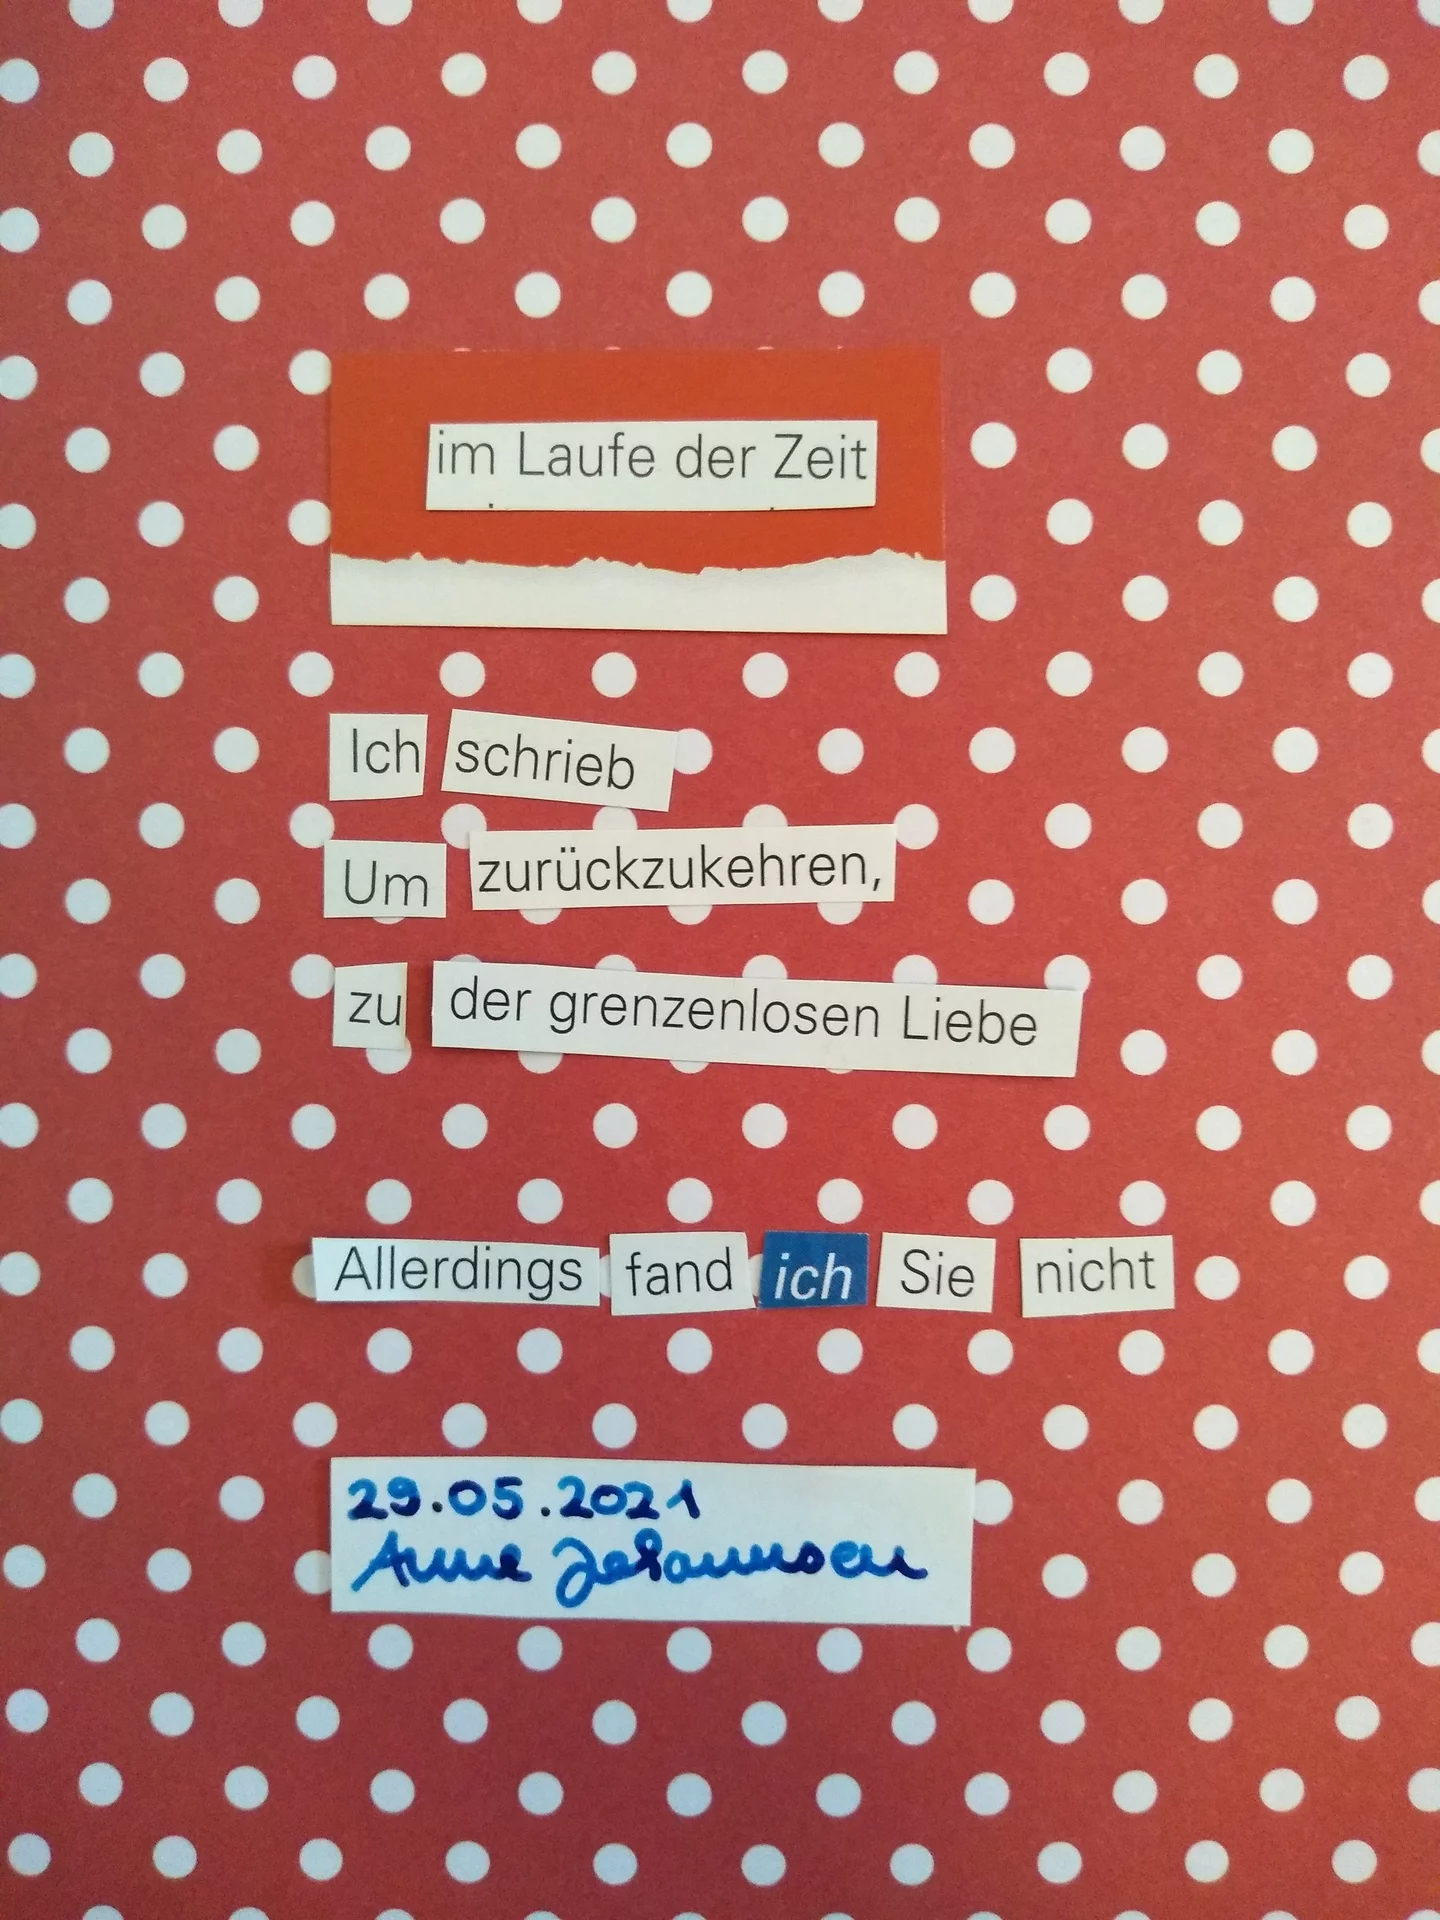 im Laufe der Zeit
Ich schrieb
Um zurückzukehren,
zu der grenzenlosen Liebe
Allerdings fand ich Sie nicht
29.05.2021
Anne Johannsen